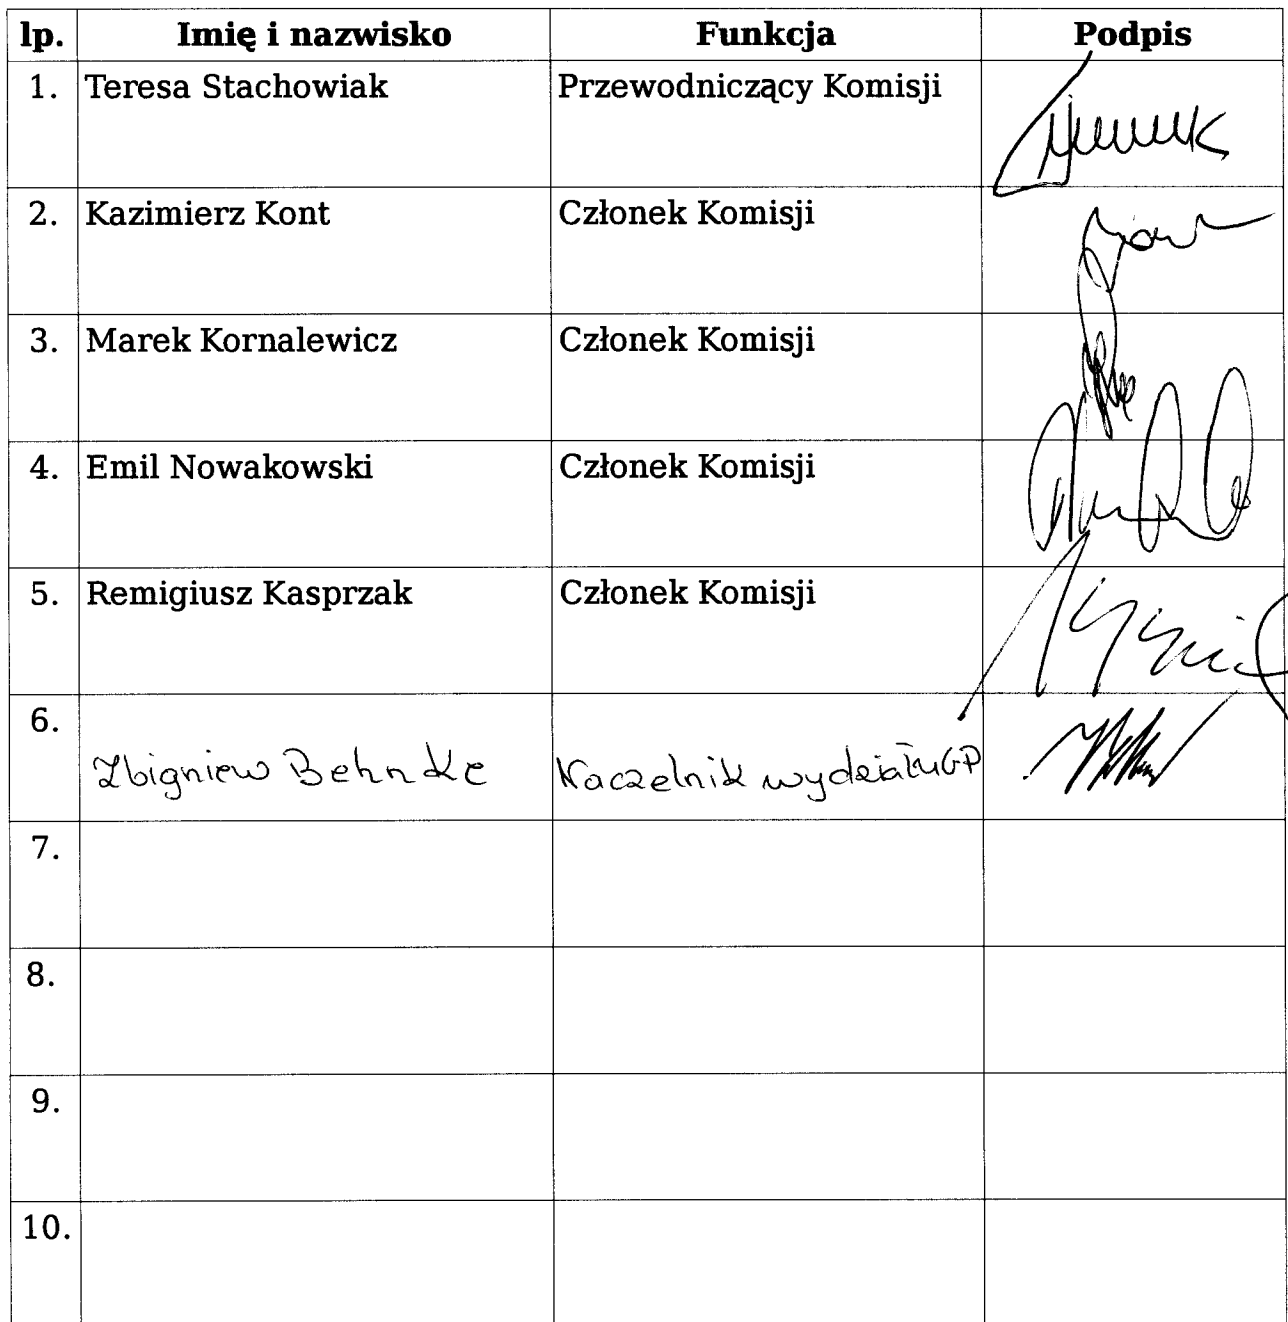 lp. Imię i nazwisko Funkcja Podpis
1. Teresa Stachowiak Przewodniczący Komisji
2. Kazimierz Kont Członek Komisji
3. Marek Kornalewicz Członek Komisji
4. Emil Nowakowski Członek Komisji
5. Remigiusz Kasprzak Członek Komisji
6. Zbigniew Behnke Naczelnik wydziału GP
7.
8.
9.
10.